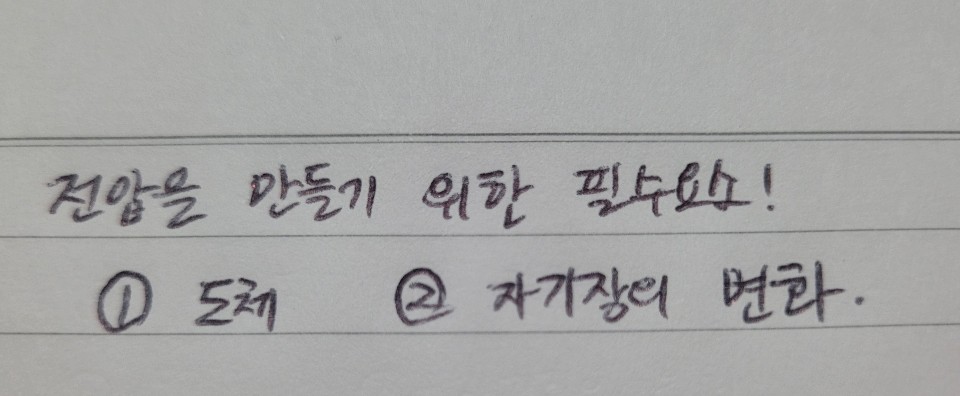 전압을 만들기 위한 필수요소!
① 도체 ② 자기장의 변화.